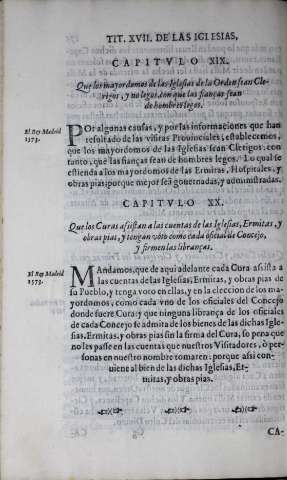 TIT. XVII. DE LAS IGLESIAS,
CAPITVLO XIX.
Que los mayordomos de las Iglesias de la Orden sean Cle-
rigos, y no legos, con que las fianças sean
de hombres legos.
El Rey Madrid
1573.
POr algunas causas, y por las informaciones que han
resultado de las visitas Prouinciales, establecemos,
que los mayordomos de las Iglesias sean Clerigos: con
tanto, que las fianças sean de hombres legos. Lo qual se
estienda a los mayordomos de las Ermitas, Hospitales, y
obras pias: porque mejor seā gouernadas, y administradas.
CAPITVLO XX.
Que los Curas asistan a las cuentas de las Iglesias, Ermitas, y
obras pias, y tengan voto como cada oficial de Concejo,
y firmen las libranças.
El Rey Madrid
1573.
MAndamos, que de aqui adelante cada Cura assista a
las cuentas de las Iglesias, Ermitas, y obras pias de
su Pueblo, y tenga voto en ellas, y en la eleccion de los ma-
yordomos, como cada vno de los oficiales del Concejo
donde fuere Cura: y que ninguna librança de los oficiales
de cada Concejo se admita de los bienes de las dichas Igle-
sias, Ermitas, y obras pias sin la firma del Cura, so pena que
no les passe en las cuentas que nuestros Visitadores, ò per-
sonas en nuestro nombre tomaren: porque assi con-
uiene al bien de las dichas Iglesias, Er-
mitas, y obras pias.
CA-